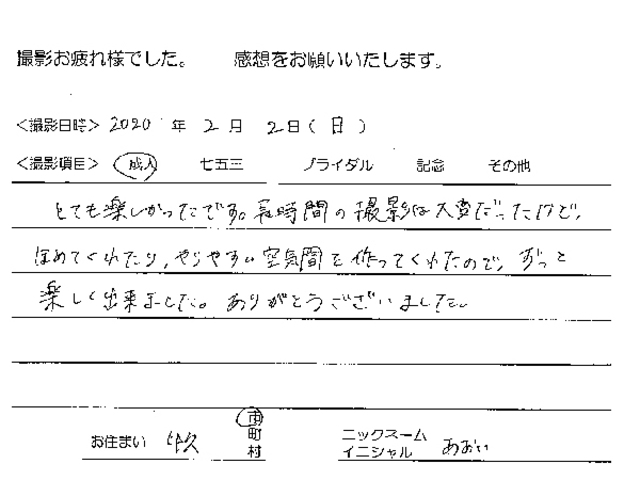 撮影お疲れ様でした。 感想をお願いいたします。
＜撮影日時＞ 2020 年 2 月 2 日（日）
＜撮影項目＞ 成人 七五三 ブライダル 記念 その他
とても楽しかったです。長時間の撮影は大変だったけど、
ほめてくれたり、やりやすい空気間を作ってくれたので、ずっと
楽しく出来ました。ありがとうございました。
お住まい 牛久 市
町
村
ニックネーム
イニシャル あおい